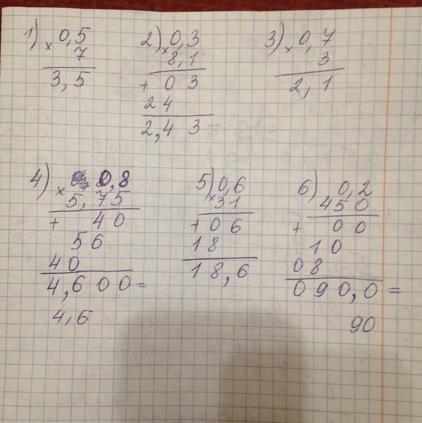 1) 0,5
× 7
3,5
2) 0,3
× 8,1
+ 0 3
2 4
2,4 3
3) 0,7
× 3
2,1
4) 0,8
× 5,75
+ 4 0
5 6
4 0
4,6 0 0 =
4,6
5) 0,6
× 31
+ 0 6
1 8
1 8,6
6) 0,2
× 4 5 0
+ 0 0
1 0
0 8
0 9 0,0 =
90